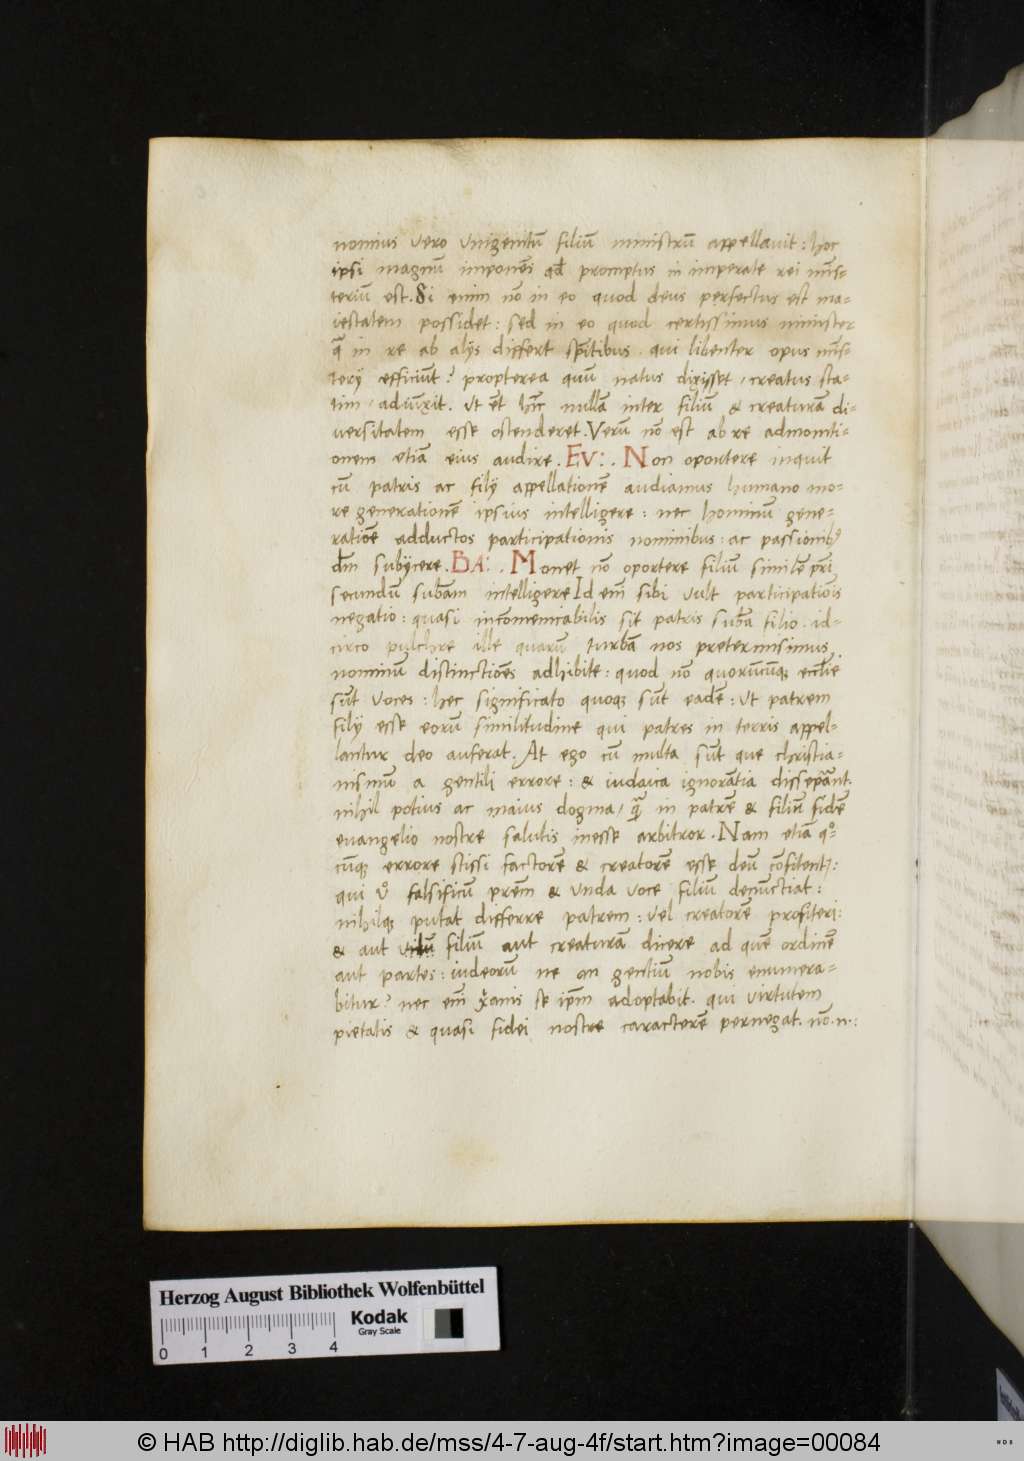 nomius vero vnigenitū filiū ministrū appellauit : hoc
ipsi magnū imponēs qđ promptus in imperate rei mīs-
teriū est. Si enim nō in eo quod deus perfectus est ma-
iestatem possidet : sed in eo quod certissimus minister
q̄ in re ab alijs differt spītibus . qui libenter opus mīs-
terij efficiūt ? propterea quū natus dixisset / creatus sta-
tim / adiūxit . Vt ēt hīc nullā inter filiū & creaturā di-
uersitatem esse ostenderet . Verū nō est ab re admoniti-
onem etiā eius audire . EV : . Non oportere inquit
cū patris ac filij appellationē audiamus humano mo-
re generationē ipsius intelligere : nec hominū gene-
ratiōe adductos participationis nominibus : ac passionib;
dm̄ subijcere . BA : . Monet nō oportere filiū similē pr̄i
secundū subāam intelligere Id em̄ sibi vult participatiōis
negatio : quasi incōmenicabilis sit patris subā filio . id-
circo pulchre ille quarū turbā nos pretermisimus
nominū distinctiōes adhibite : quod nō quorūcūq; eccl̄ie
sūt voces : hec significato quoq; sūt eadē : vt patrem
filij esse eorū similitudine qui patres in terris appel-
lantur deo auferat . At ego cū multa sūt que christia-
nismū a gentili errore : & iudaica ignorātia dissepāant .
nihil potius ac maius dogma / q̄ in patrē & filiū fidē
euangelio nostre salutis inesse arbitror . Nam etiā q°-
cūq; errore scissi factorē & creatorē esse deū cōfitent~ :
qui v° falsificū prēm & vnda voce filiū denūctiat :
nihilq; putat differre patrem : vel creatorē profiteri :
& aut filiū aut creaturā dicere ad quē ordinē
aut partes : iudeorū ne an gentiū nobis enumera-
bitur ? nec em̄ xānis se ipm̄ adoptabit . qui virtutem
pietatis & quasi fidei nostre caracterē pernegat . nō . n . :
Herzog August Bibliothek Wolfenbüttel
Kodak
Gray Scale
0 1 2 3 4
© HAB http://diglib.hab.de/mss/4-7-aug-4f/start.htm?image=00084